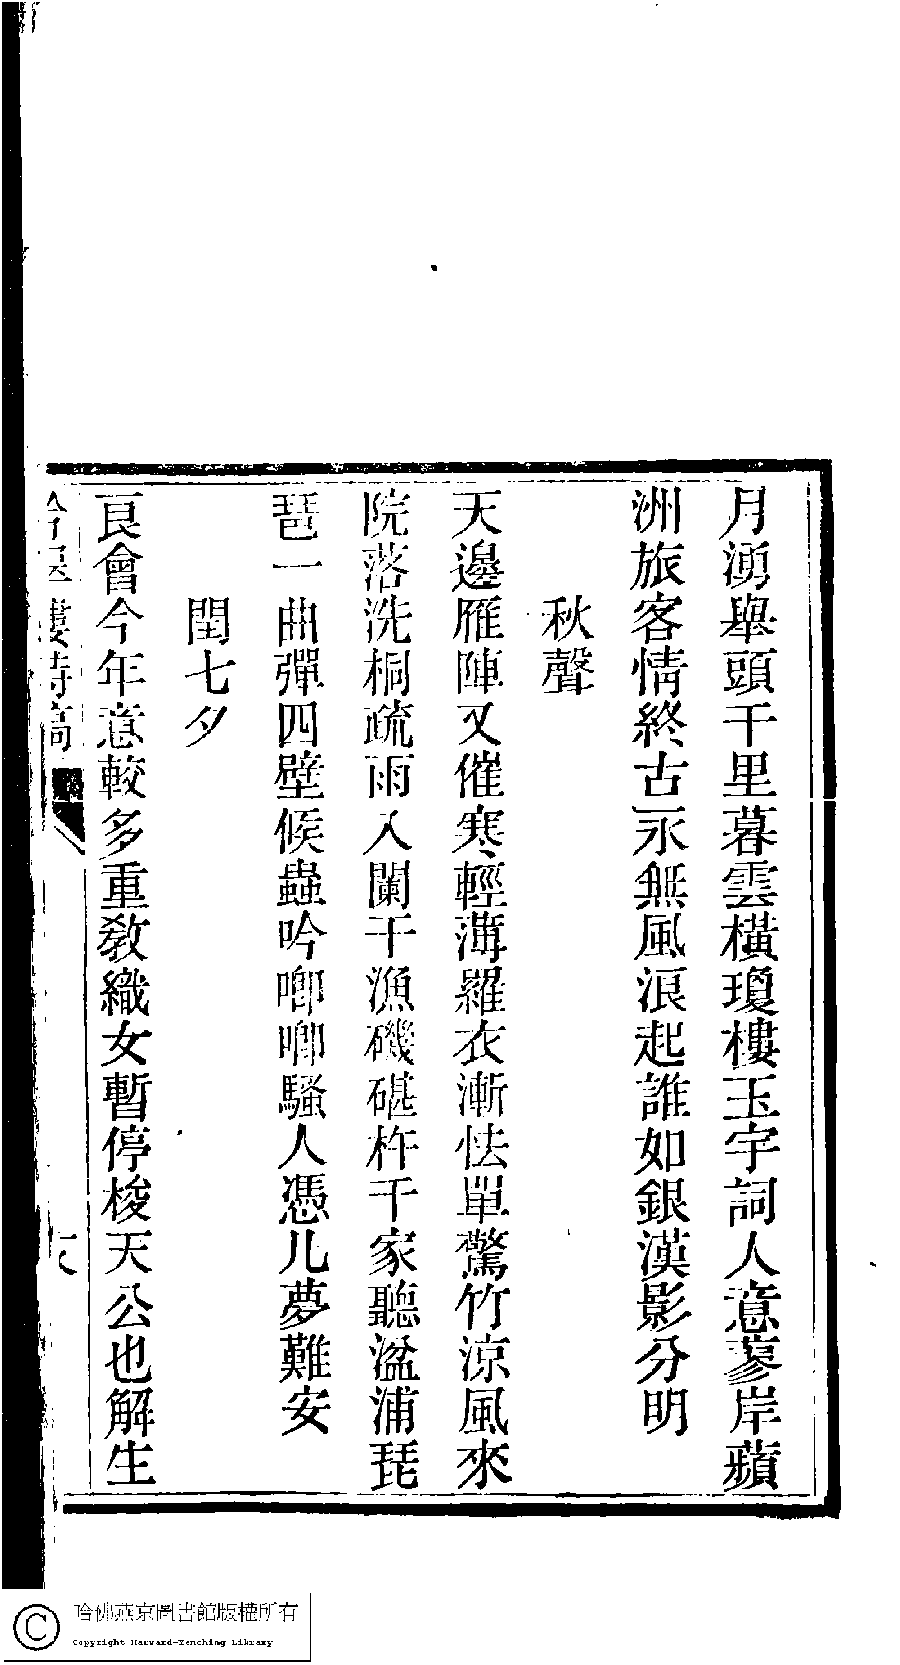 月湧舉頭千里暮雲橫瓊樓玉宇詞人意蓼岸蘋
洲旅客情終古永無風浪起誰如銀漢影分明
秋聲
天邊雁陣又催寒輕薄羅衣漸怯單驚竹涼風來
院落洗桐疏雨入闌干漁磯碪杵千家聽湓浦琵
琶一曲彈四壁候蟲吟唧唧騷人憑几夢難安
閏七夕
良會今年意較多重敎織女暫停梭天公也解生
樓詩稿
哈佛燕京圖書館版權所有
Copyright Harvard-Yenching Library